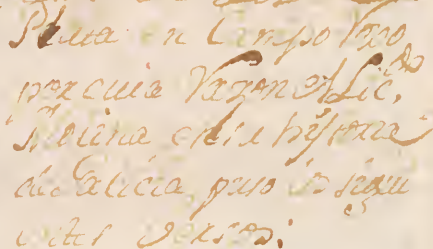 Pluma en Campo Roxo
por cuia Razon el Lic.do
Molina en su hystoria
de Galicia, puso los sigui
entes versos: